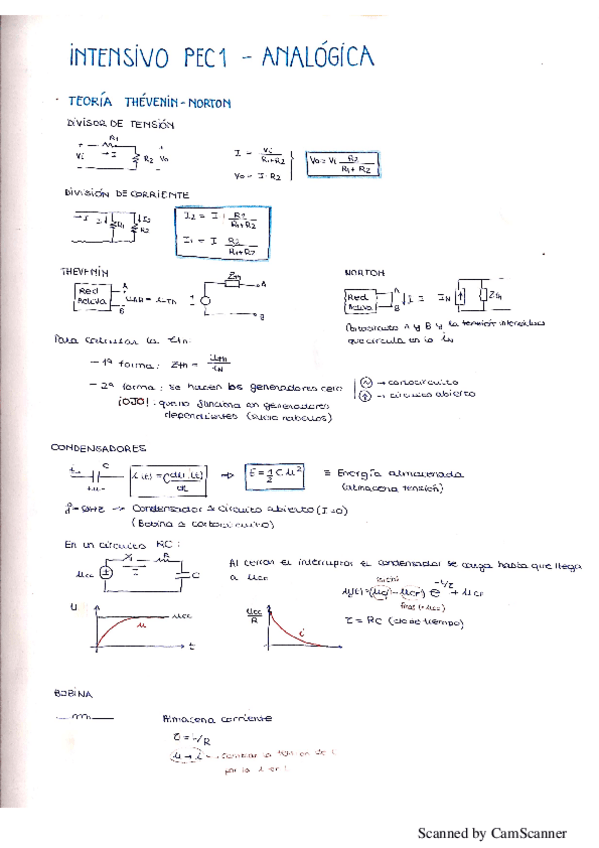 INTENSIVO PEC1 - ANALÓGICA
· TEORÍA THÉVENIN-NORTON
DIVISOR DE TENSIÓN
R1
+ → I + Vi R2 Vo
I = Vi / R1+R2
Vo = I·R2
Vo = Vi R2 / R1+R2
DIVISIÓN DE CORRIENTE
I2 = I · R1 / R1+R2
I1 = I R2 / R1+R2
THEVENIN
Red Activa A B
Zth A B
NORTON
Red Activa A B I = IN
y la tensión
que circula en la iN
Para calcular la Zth:
- 1ª forma: Zth = uth / iN
- 2ª forma: se hacen los generadores cero
→ cortocircuito
→ circuito abierto
¡OJO!: que no funciona en generadores
dependientes
CONDENSADORES
C
i(t) = C du(t) / dt
⇒ E = 1/2 C u²
≡ Energía almacenada
(almacena tensión)
f = 0Hz → Condensador ≡ circuito abierto (I=0)
(Bobina ≡ cortocircuito)
En un circuito RC:
ucc R C
Al cerrar el interruptor el condensador se carga hasta que llega
a ucc
e -t/τ
τ = RC (cte de tiempo)
U ucc u t
ucc / R i
BOBINA
Almacena corriente
τ = L/R
u → i
Scanned by CamScanner